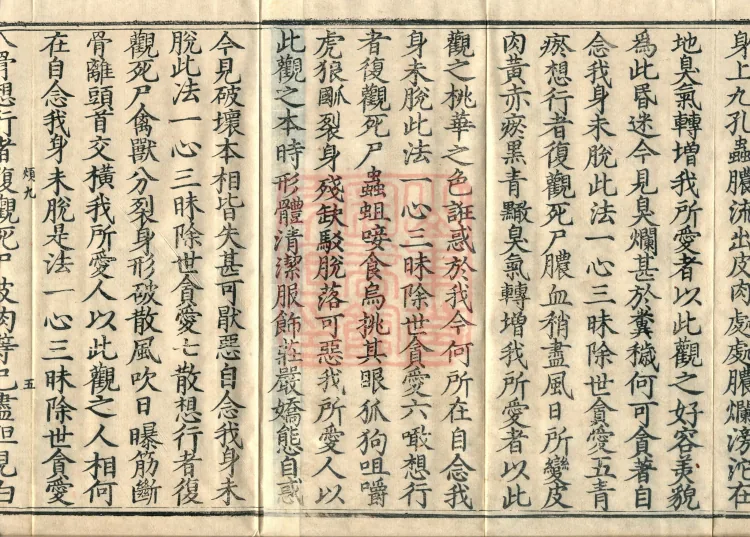 身上九孔蟲膿流出皮肉處處膿爛滂沲在
地臭氣轉增我所愛者以此觀之好容美貌
爲此昏迷今見臭爛甚於糞穢何可貪著自
念我身未脫此法一心三昧除世貪愛五青
瘀想行者復觀死尸膿血稍盡風日所變皮
肉黃赤瘀黑青黤臭氣轉增我所愛者以此
觀之桃華之色誑惑於我今何所在自念我
身未脫此法一心三昧除世貪愛六噉想行
者復觀死尸蟲蛆唼食烏挑其眼狐狗咀嚼
虎狼𤔩裂身殘缺駁脫落可惡我所愛人以
此觀之本時形體清潔服飾莊嚴嬌態自惑
今見破壞本相皆失甚可猒惡自念我身未
脫此法一心三昧除世貪愛七散想行者復
觀死尸禽獸分裂身形破散風吹日曝筋斷
骨離頭首交橫我所愛人以此觀之人相何
在自念我身未脫是法一心三昧除世貪愛
煩九 五
八骨想行者復觀死尸皮肉等已盡但見白